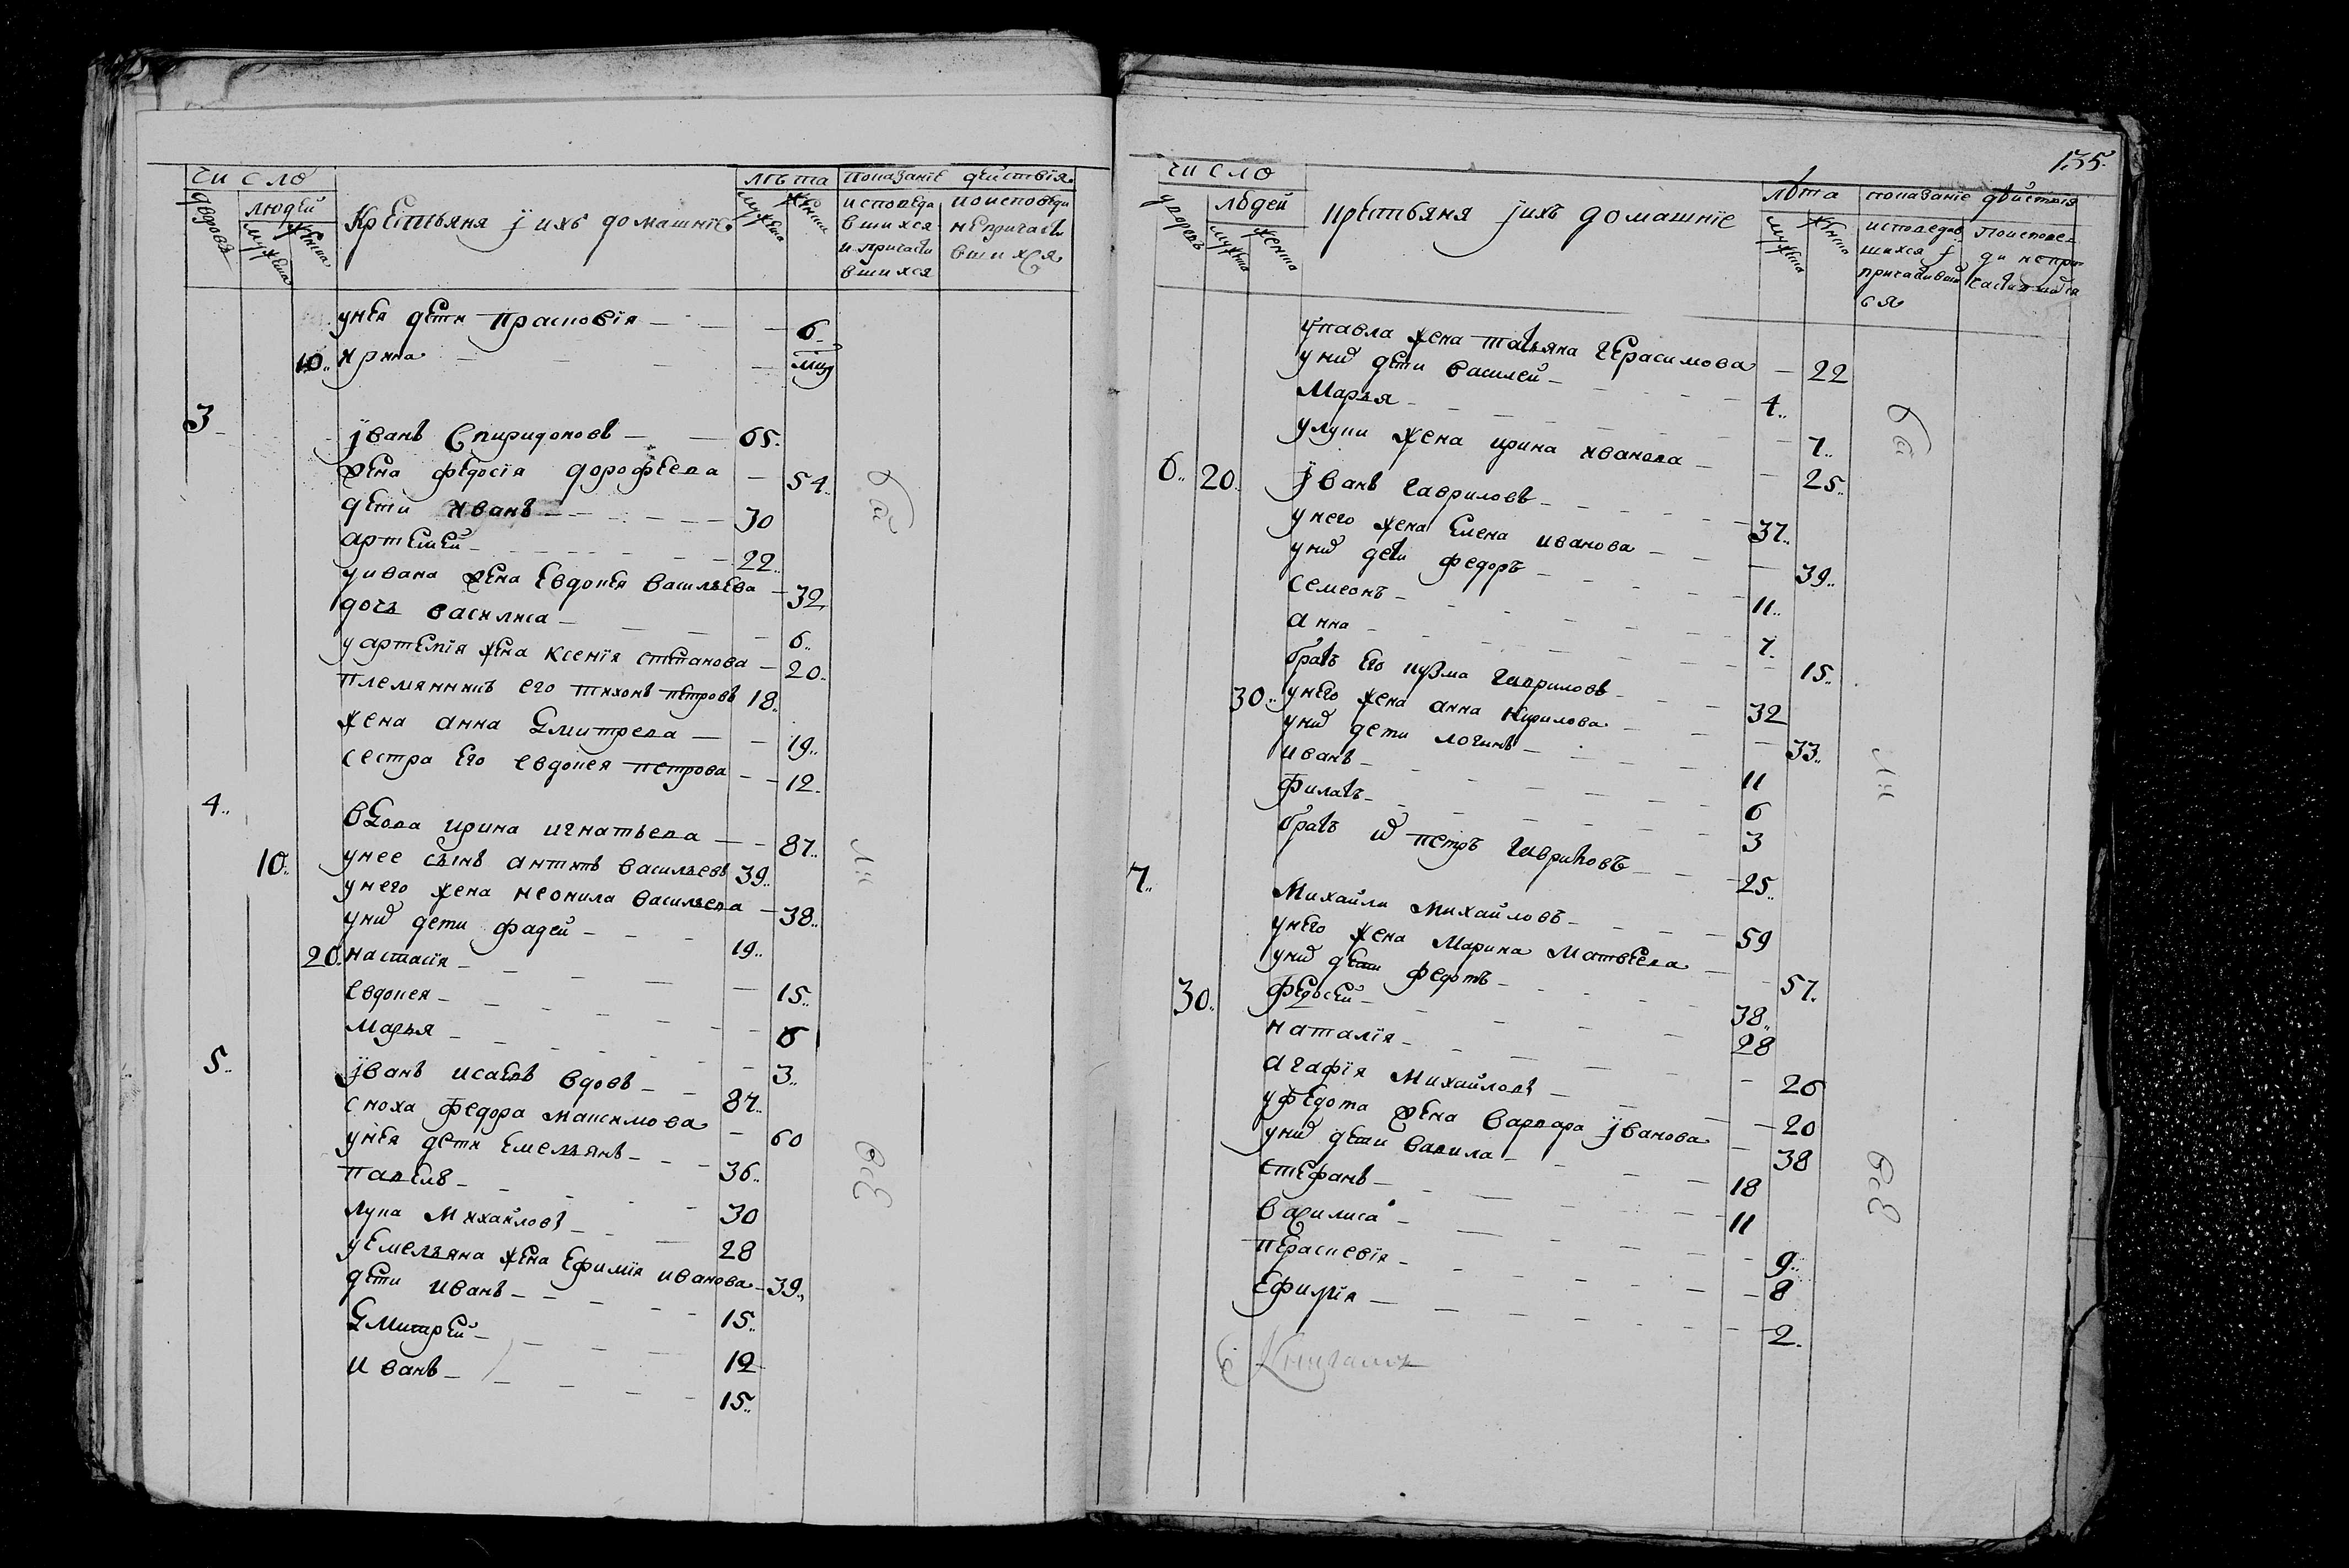 число
дворовъ
людей
мужеска
женска
Крестьяня ї ихъ домашніе
лѣта
мужеска
женска
показаніе действія
исповеда
вшихся
и причасти
вшихся
поисповеди
непричасти
вшихся
унея дети Прасковія — 6
10.. Ирина — мцъ
3
їванъ Спиридоновъ — 65.
жена федосія дорофеева — 54..
дети иванъ — 30
артемей — 22..
уивана жена Евдокея Васильева — 32
дочь василиса — 6..
уартемія жена ксенїя степанова — 20.
племянникъ его тихонъ петровъ 18..
жена анна дмитрева — 19..
сестра Его евдокея петрова — 12.
4..
вдова ирина игнатьева — 87..
10.. унее сынъ антипъ васильевъ 39..
унего жена неонила васильева — 38..
унихъ дети фадей — 19..
20. настасїя — 15..
евдокея — 6
марья — 3..
5..
їванъ исаевъ вдовъ — 87..
сноха федора максимова — 60
унея дети емельянъ — 36..
павелъ — 30
лупа Михайловъ — 28
уемельяна жена Ефимїя иванова — 39..
дети иванъ — 15..
дмитрей — 12
иванъ — 15..
ба
ли
зве
135.
число
дворовъ
людей
мужеска
женска
крестьяня їихъ домашніе
лѣта
мужеска
женска
показаніе действія
исповедав
шихся ї
причастивших
ся
поиспове
ди непри
частившихся
упавла жена татьяна Герасимова — 22
унихъ дети василей — 4..
Марья — 1..
улупи жена ирина иванова — 25..
6.. 20.. їванъ гавриловъ — 37..
унего жена елена иванова — 39..
унихъ дети федоръ — 11..
семеонъ — 7.
анна — 15..
братъ Его кузма гавриловъ — 32
30.. унего жена анна кирилова — 33..
унихъ дети логинъ — 11
иванъ — 6
филатъ — 3
братъ ихъ петръ гавриловъ — 25..
7..
Михайли Михайловъ — 59
унего жена Марина Матвеева — 57.
унихъ дети федотъ — 38..
30.. федосей — 28
наталїя — 26
агафїя Михайлова — 20
уфедота жена варвара їванова — 38
унихъ дети вавила — 18
стефанъ — 11
василиса — 9..
Перасковїя — 8
Ефимїя — 2.
ба
ли
зве